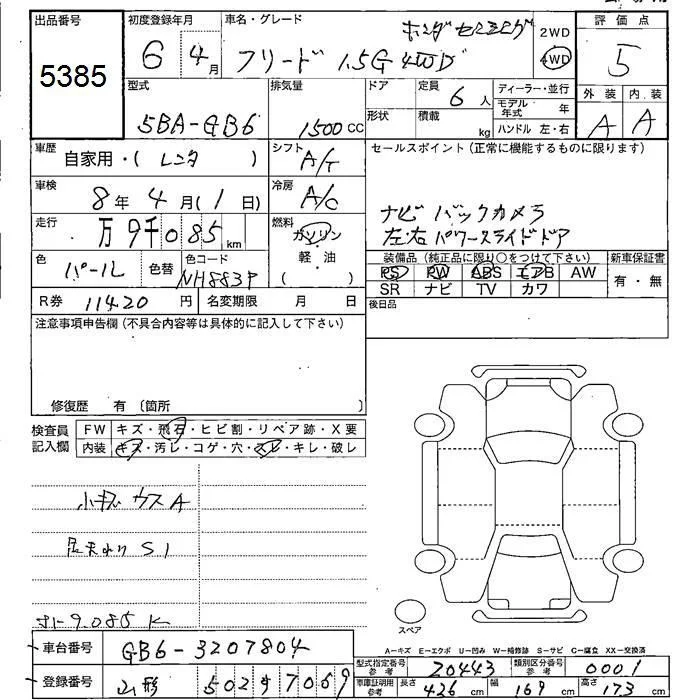 出品番号
5385
初度登録年月
6 4月
車名・グレード
フリード 1.5G 4WD
2WD
4WD
評価点
5
外装 内装
A A
型式
5BA-GB6
排気量
1500cc
ドア
形状
定員
6人
積載
kg
ディーラー・並行
モデル年式 年
ハンドル 左・右
車歴
自家用・( レンタ )
シフト
A/T
セールスポイント(正常に機能するものに限ります)
ナビ バックカメラ
左右パワースライドドア
車検
8年4月(1日)
冷房
A/C
走行
万9千085km
燃料
ガソリン
軽・油
( )
色
パール
色替
色コード
NH883P
装備品(純正品に限り○をつけて下さい)
PS PW ABS エアB AW
SR ナビ TV カワ
新車保証書
有・無
R券 11420円
名変期限 月 日
後日品
注意事項申告欄(不具合内容等は具体的に記入して下さい)
修復歴 有 〔箇所 〕
検査員記入欄
FW キズ・飛石・ヒビ割・リペア跡・X要
内装 キズ・汚レ・コゲ・穴・スレ・キレ・破レ
小キズ ウスA
S1
9.085K
スペア
A−キズ E−エクボ U−凹み W−補修跡 S−サビ C−腐立 XX−交換済
車台番号
GB6-3207804
登録番号
山形 502 7069
型式指定番号
参考
20443
類別区分番号
参考
0001
車庫証明用
参考
長さ
426cm
幅
169cm
高さ
173cm